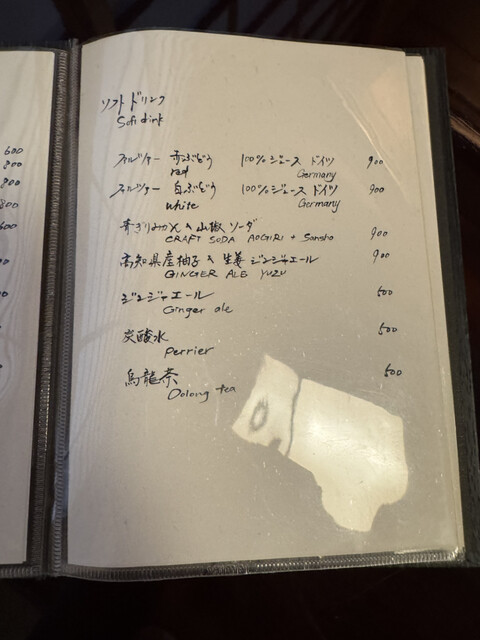 600
800
800
800
600
ソフトドリンク
Soft drink
フルツァー 赤ぶどう 100%ジュース ドイツ 900
red Germany
フルツァー 白ぶどう 100%ジュース ドイツ 900
white Germany
青ぎりみかん & 山椒 ソーダ
CRAFT SODA AOGIRI + Sansho 900
高知県産柚子 & 生姜 ジンジャエール 900
GINGER ALE YUZU
ジンジャエール 500
Ginger ale
炭酸水 500
Perrier
烏龍茶 500
Oolong tea